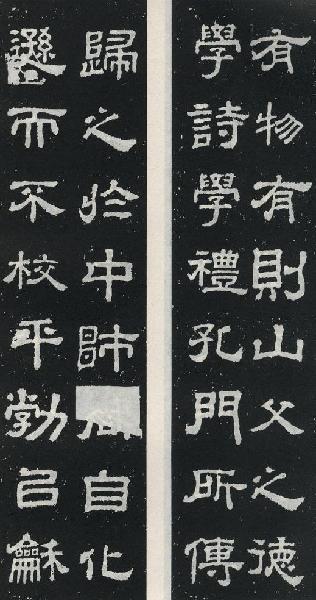 有物有則山父之德
學詩學禮孔門所傳
歸之於中師自化
遜而不校平勃龢